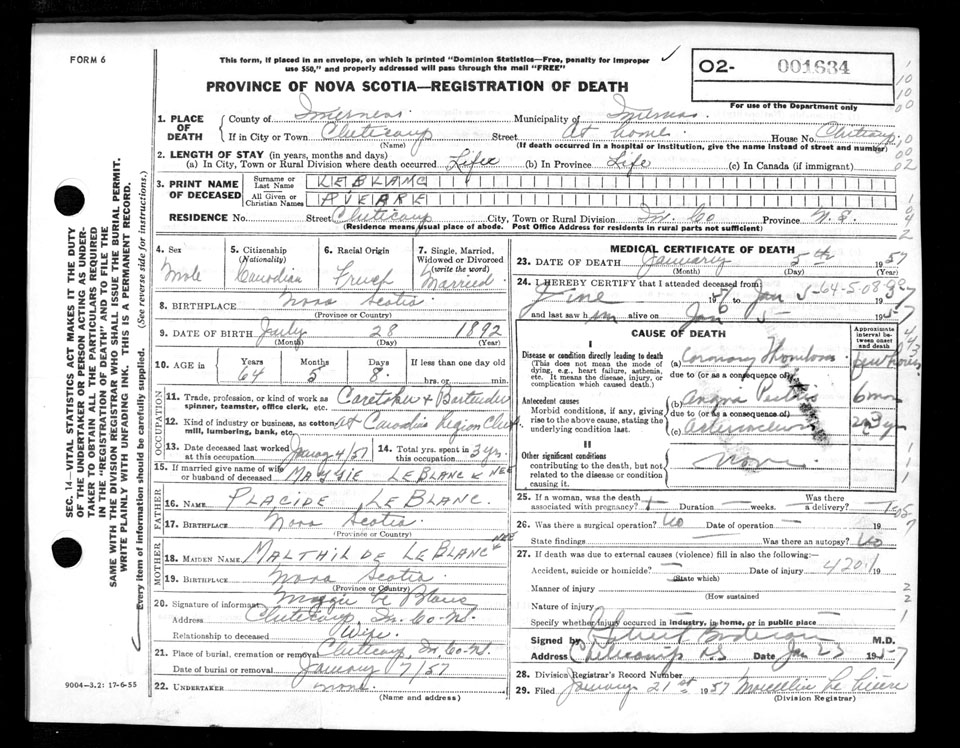 FORM 6
This form, if placed in an envelope, on which is printed "Dominion Statistics—Free, penalty for improper
use $50," and properly addressed will pass through the mail "FREE"
PROVINCE OF NOVA SCOTIA—REGISTRATION OF DEATH
O2- 001634
For use of the Department only
SEC. 14—VITAL STATISTICS ACT MAKES IT THE DUTY
OF THE UNDERTAKER OR PERSON ACTING AS UNDER-
TAKER TO OBTAIN ALL THE PARTICULARS REQUIRED
IN THE "REGISTRATION OF DEATH" AND TO FILE THE
SAME WITH THE DIVISION REGISTRAR WHO SHALL ISSUE THE BURIAL PERMIT.
WRITE PLAINLY WITH UNFADING INK. THIS IS A PERMANENT RECORD.
Every item of information should be carefully supplied. (See reverse side for instructions.)
1. PLACE OF DEATH
County of Inverness Municipality of Inverness
If in City or Town Cheticamp Street At home House No. Cheticamp
(Name) (If death occurred in a hospital or institution, give the name instead of street and number)
2. LENGTH OF STAY (in years, months and days)
(a) In City, Town or Rural Division where death occurred Life (b) In Province Life (c) In Canada (if immigrant)
3. PRINT NAME OF DECEASED
Surname or Last Name LEBLANC
All Given or Christian Names
RESIDENCE No. Street Cheticamp City, Town or Rural Division In. Co Province N.S.
(Residence means usual place of abode. Post Office Address for residents in rural parts not sufficient)
4. Sex Male
5. Citizenship (Nationality) Canadian
6. Racial Origin French
7. Single, Married, Widowed or Divorced (write the word) Married
8. BIRTHPLACE Nova Scotia
(Province or Country)
9. DATE OF BIRTH July 28 1892
(Month) (Day) (Year)
10. AGE in Years 64 Months 5 Days 8 If less than one day old hrs. or min.
OCCUPATION
11. Trade, profession, or kind of work as spinner, teamster, office clerk, etc. Caretaker & Bartender
12. Kind of industry or business, as cotton mill, lumbering, bank, etc. at Canadian Legion Club
13. Date deceased last worked at this occupation January 4/57
14. Total yrs. spent in this occupation 3 yrs.
15. If married give name of wife or husband of deceased LEBLANC NEE
FATHER
16. NAME PLACIDE LEBLANC.
17. BIRTHPLACE Nova Scotia.
(Province or Country)
MOTHER
18. MAIDEN NAME MALTHILDE LEBLANC NEE
19. BIRTHPLACE Nova Scotia
(Province or Country)
20. Signature of informant Maggie Le Blanc
Address Cheticamp, In. Co-N.
Relationship to deceased Wife.
21. Place of burial, cremation or removal Cheticamp, In. Co-N.
Date of burial or removal January 7/57
22. UNDERTAKER none
(Name and address)
9004—3.2: 17-6-55
MEDICAL CERTIFICATE OF DEATH
23. DATE OF DEATH January 5th 1957
(Month) (Day) (Year)
24. I HEREBY CERTIFY that I attended deceased from:
57 to Jan 5-64-5-08-92 1957
and last saw him alive on Jan 5 1957
CAUSE OF DEATH
Approximate interval between onset and death
I
Disease or condition directly leading to death
(This does not mean the mode of dying, e.g., heart failure, asthenia, etc. It means the disease, injury, or complication which caused death.)
(a) Coronary Thrombosis few hours
due to (or as a consequence of)
Antecedent causes
Morbid conditions, if any, giving rise to the above cause, stating the underlying condition last.
(b) Angina Pectoris 6 mos
due to (or as a consequence of)
(c)
II
Other significant conditions
contributing to the death, but not related to the disease or condition causing it.
none
25. If a woman, was the death associated with pregnancy? Duration weeks. Was there a delivery?
26. Was there a surgical operation? No Date of operation 19
State findings Was there an autopsy? No
27. If death was due to external causes (violence) fill in also the following:—
Accident, suicide or homicide? Date of injury 420.1 19
(State which)
Manner of injury
(How sustained
Nature of injury
Specify whether injury occurred in industry, in home, or in public place
Signed by M.D.
Address Cheticamp N.S Date Jan 23 1957
28. Division Registrar's Record Number
29. Filed January 21st 1957
(Division Registrar)